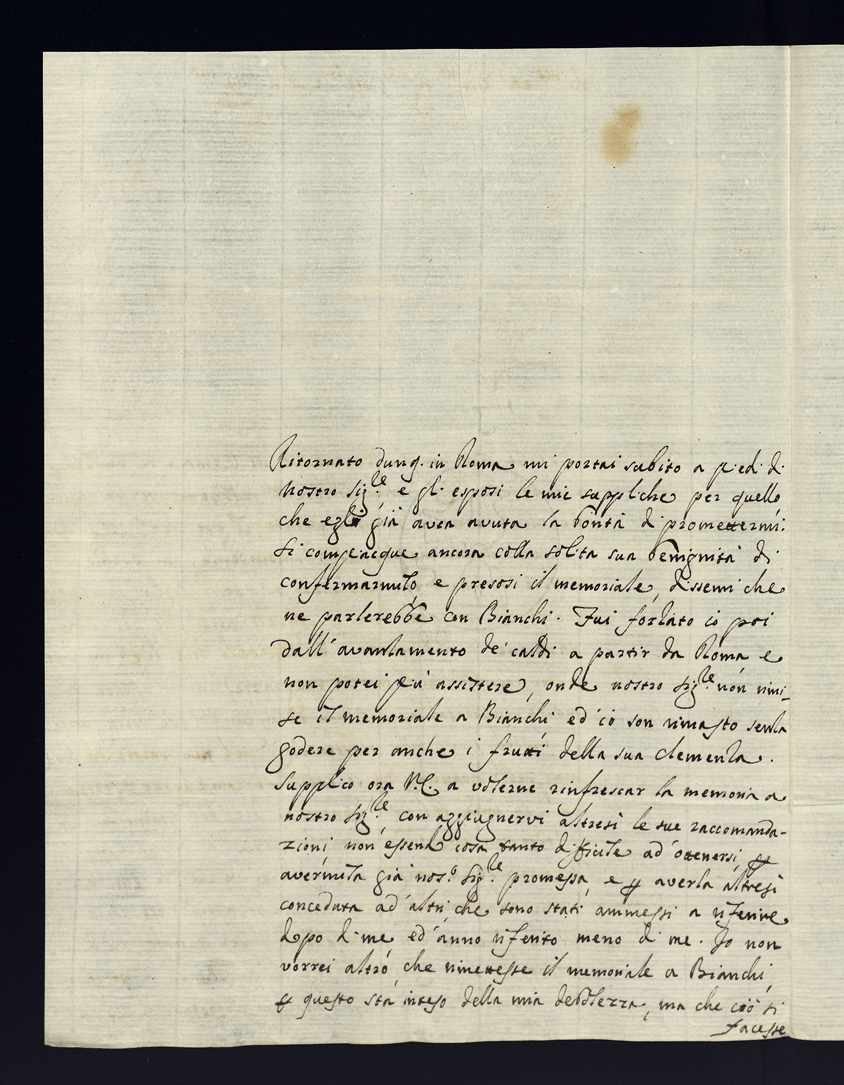 Ritornato dunq. in Roma mi portai subito a piedi di
nostro Sig.re e gli esposi le mie suppliche per quello
che egli già avea avuta la bontà di promettermi:
Si compiacque ancora colla solita sua benignità di
confermarmelo, e presosi il memoriale, dissemi che
ne parlerebbe con Bianchi. Fui forzato io poi
dall'avanzamento de' caldi a partir da Roma e
non potei più assistere, onde nostro Sig.re non rimi-
se il memoriale a Bianchi ed io son rimasto senza
godere per anche i frutti della sua clemenza.
Supplico ora V.E. a volerne rinfrescar la memoria a
nostro Sig.re con aggiugnervi altresì le sue raccomanda-
zioni non essend cosa tanto difficile ad ottenersi, p
avermela già nos.o Sig.re promessa, e p averla altresì
conceduta ad altri, che sono stati ammessi a riferire
dopo di me ed anno riferito meno di me. Io non
vorrei altro, che rimettesse il memoriale a Bianchi,
p questo sta inteso della mia debolezza, ma che ciò si
facesse